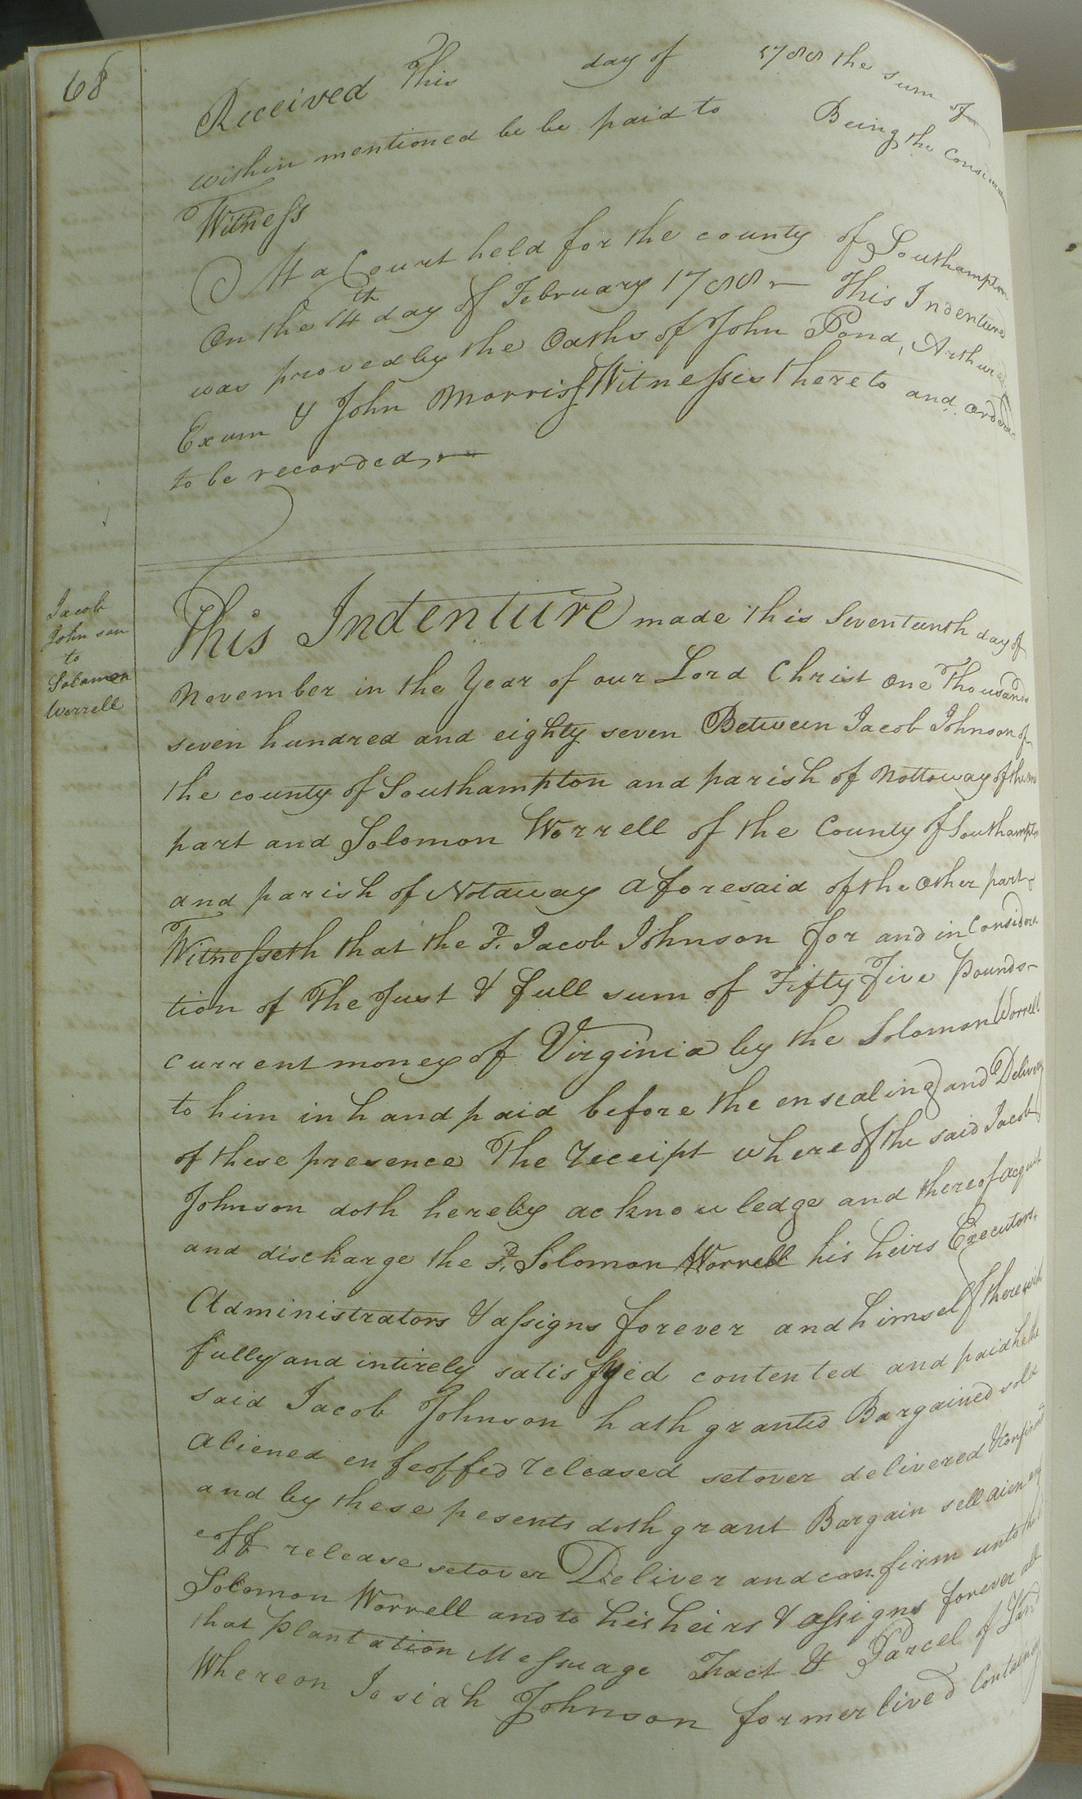 68
Received This day of 1788 the sum of
within mentioned be be paid to Being the
Witness
At a Court held for the county of Southampton
On the 14th day of February 1788 This Indenture
was proved by the Oaths of John Pond, Arthur
Exum & John Morriss Witnesses thereto and ordered
to be recorded
Jacob
Johnson
to
Solomon
Worrell
This Indenture made this Seventeenth day of
November in the Year of our Lord Christ One Thousand
seven hundred and eighty seven Between Jacob Johnson of
the county of Southampton and parish of Nottoway of the one
part and Solomon Worrell of the County of Southampton
and parish of Notaway aforesaid of the Other part
Witnesseth that the sd. Jacob Johnson for and in Considera
tion of The Just & full sum of Fifty Five Pounds
current money of Virginia by the Solomon Worrell
to him in hand paid before the ensealing and Delivery
of these presence The receipt where of the said Jacob
Johnson doth hereby acknowledge and thereof acquit
and discharge the sd. Solomon Worrell his heirs Executors,
Administrators & assigns forever and himself therewith
fully and intirely satisfyed contented and paid he the
said Jacob Johnson hath granted Bargained sold
aliened enfeoffed released setover delivered & confirmed
and by these pesents doth grant Bargain sell alien
eoff release setover Deliver and confirm unto the
Solomon Worrell and to his heirs & assigns forever all
that plantation Messuage Tract & Parcel of Land
Whereon Josiah Johnson former lived Containing